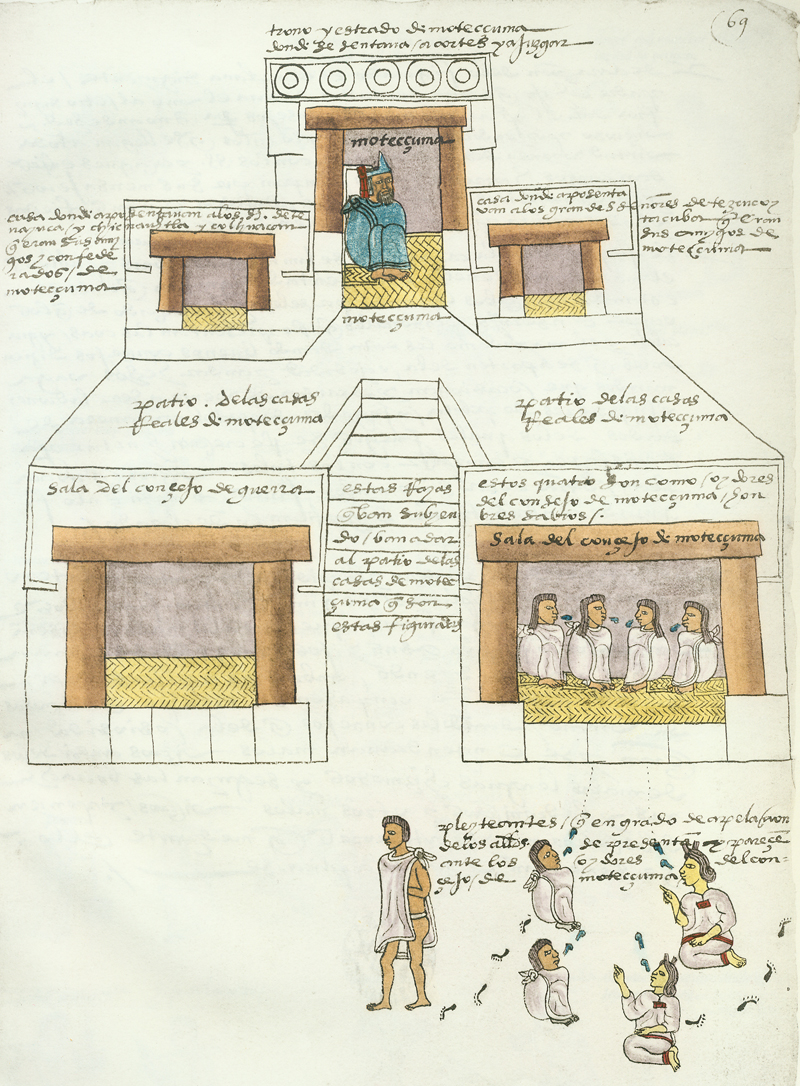 69
trono y estrado de motecçuma
donde se sentava a cortes y a juzgar
motecçuma
casa donde aposentavan a los S. de te
nayuca / y chicnauhtla y colhuacan
q eran sus ami
gos y confede
rados / de
motecçuma
casa donde aposenta
van a los grandes S
ñores de tezcuco y
tacuba q eran
sus amygos de
motecçuma
motecçuma
patio . de las casas
Reales de motecçuma
patio de las casas
Reales de motecçuma
Sala del consejo de guerra
estas Rayas
q van subyen
do / van a dar
al patio de las
casas de motec
çuma q son
estas figuradas
estos quatro son como / oydores
del consejo de motecçuma / hon
bres sabios /.
Sala del consejo de motecçuma
pleyteantes / q en grado de apelaçion
de los de presenta y pareçe
ante los oydores del con-
sejo / de motecçuma